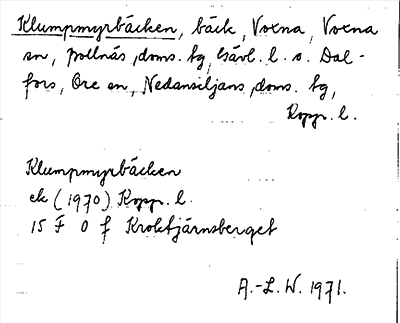 Klumpmyrbäcken, bäck, Voxna, Voxna
sn, Bollnäs, doms. tg, Gävl. l. o. Dal-
fors, Ore sn, Nedansiljans, doms. tg,
Kopp. l.
Klumpmyrbäcken
ek (1970) Kopp. l.
15 F 0 f Kroktjärnsberget
A.-L. W. 1971.